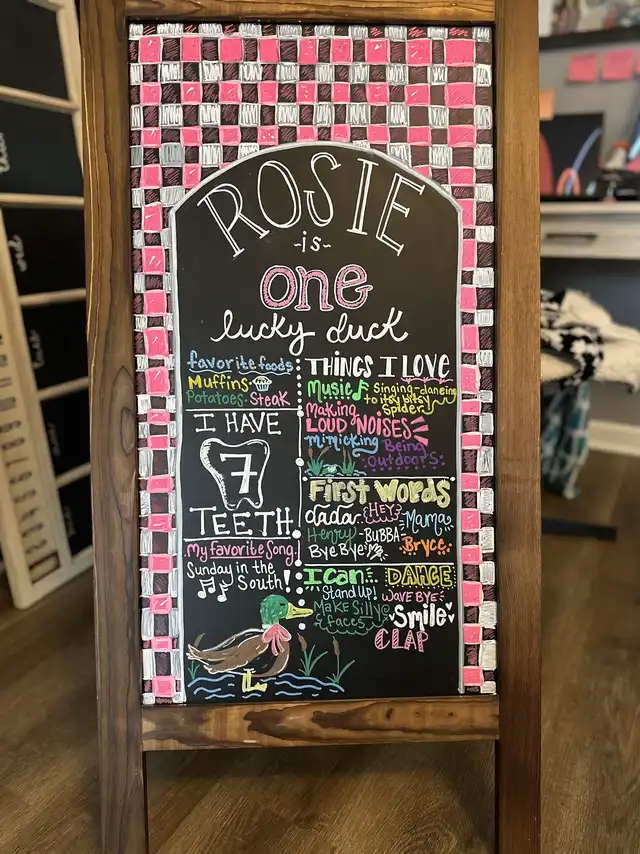 ROSIE
~is~
one
lucky duck
favorite foods
Muffins
Potatoes · Steak
I HAVE
7
TEETH
My favorite Song
Sunday in the
South!
THINGS I LOVE
Music
Singing-dancing
to itsy bitsy
Spider
Making
LOUD NOISES
mimicking
Being
outdoors
First Words
dada
HEY
Mama
Henry-BUBBA
Bye Bye
Bryce
I Can
DANCE
Stand Up!
WAVE BYE
Make Silly
faces
Smile
CLAP